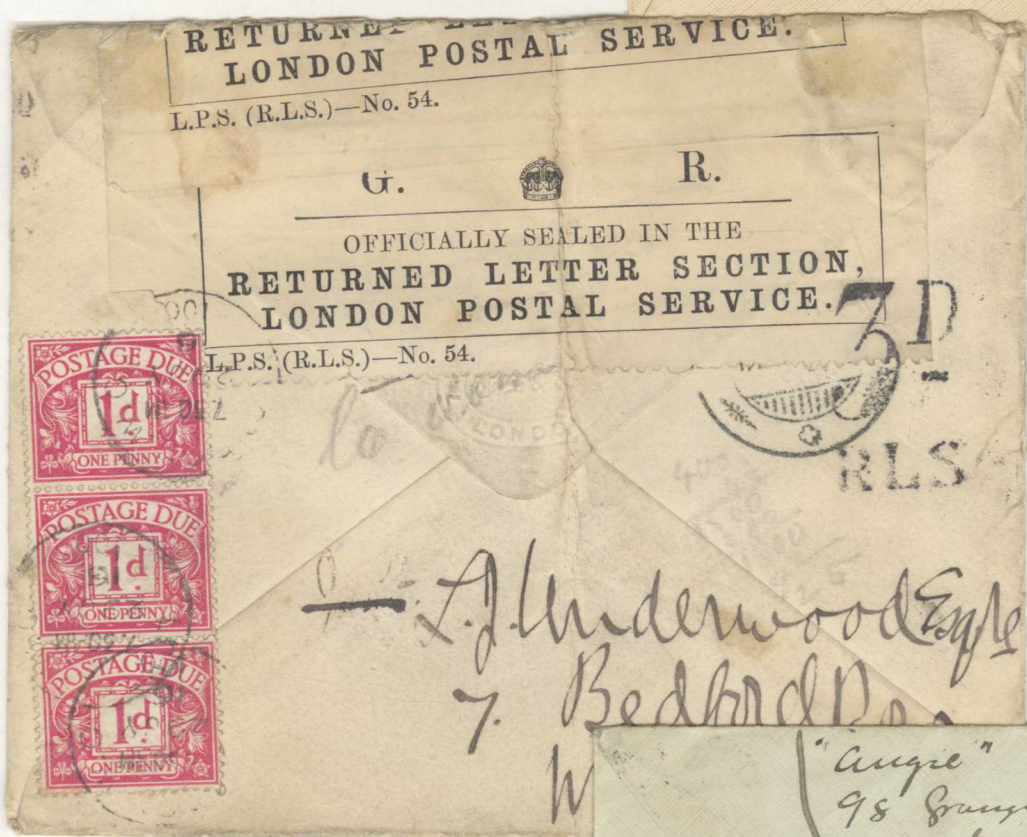 RETURNED LETTER
LONDON POSTAL SERVICE.
L.P.S. (R.L.S.)—No. 54.
G. R.
OFFICIALLY SEALED IN THE
RETURNED LETTER SECTION,
LONDON POSTAL SERVICE.
L.P.S. (R.L.S.)—No. 54.
3D
RLS
POSTAGE DUE
1d
ONE PENNY
POSTAGE DUE
1d.
ONE PENNY
POSTAGE DUE
1d
ONE PENNY
LONDO
L.J. Underwood Esqre
7. Bedford
W
"Angie"
98 Grang